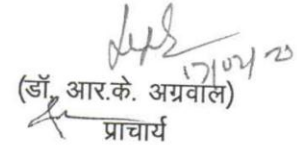 17/02/20
(डॉ. आर.के. अग्रवाल)
प्राचार्य